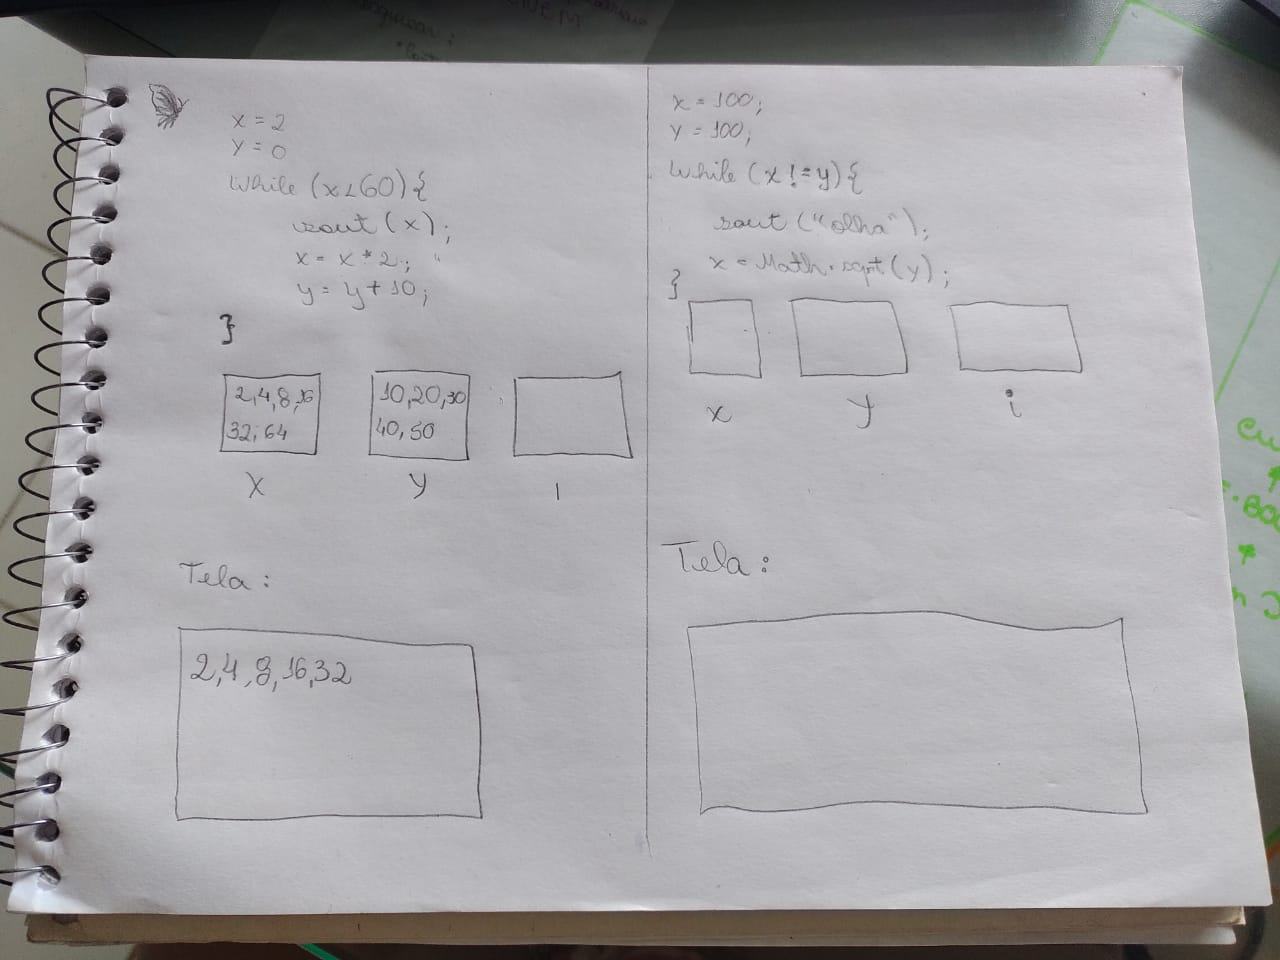 x = 2
y = 0
While (x<60) {
sout (x);
x = x * 2;
y = y + 10;
}
2,4,8,16
32,64
10,20,30
40,50
X
y
I
Tela:
2,4,8,16,32
x = 100;
y = 100;
While (x != y) {
sout ("olha");
x = Math.sqrt (y);
}
x
y
i
Tela: